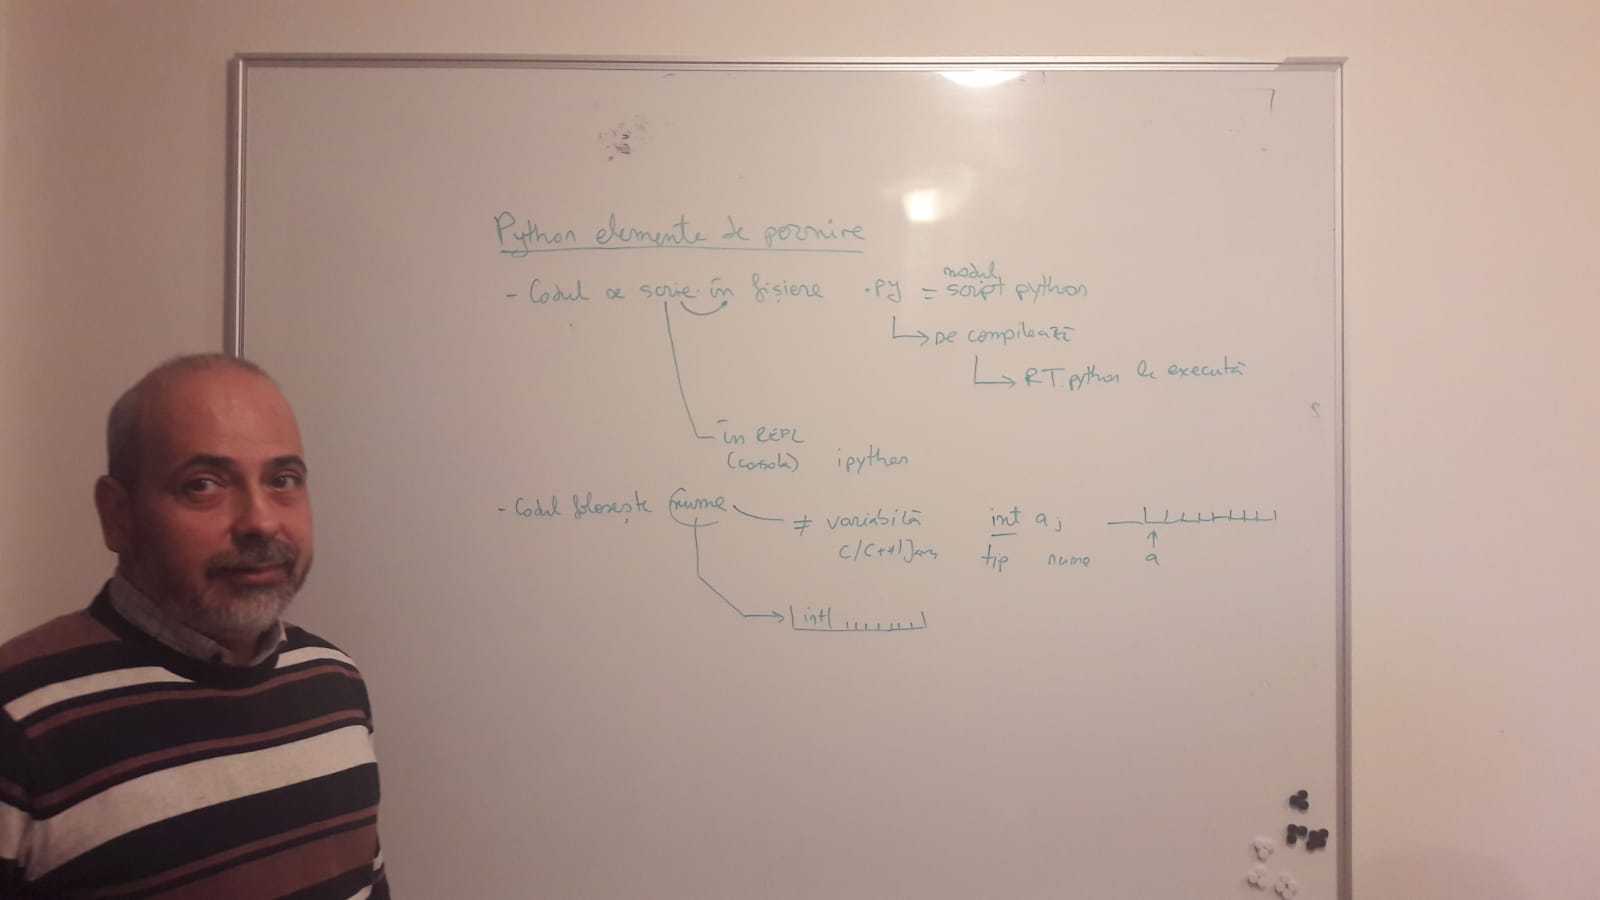 Python elemente de pornire
modul,
- Codul se scrie în fișiere .py = script python
se compilează
RT python le execută
în REPL
(consolă) ipython
- Codul folosește nume ≠ variabilă int a; 
C/C++/Java tip nume a
int